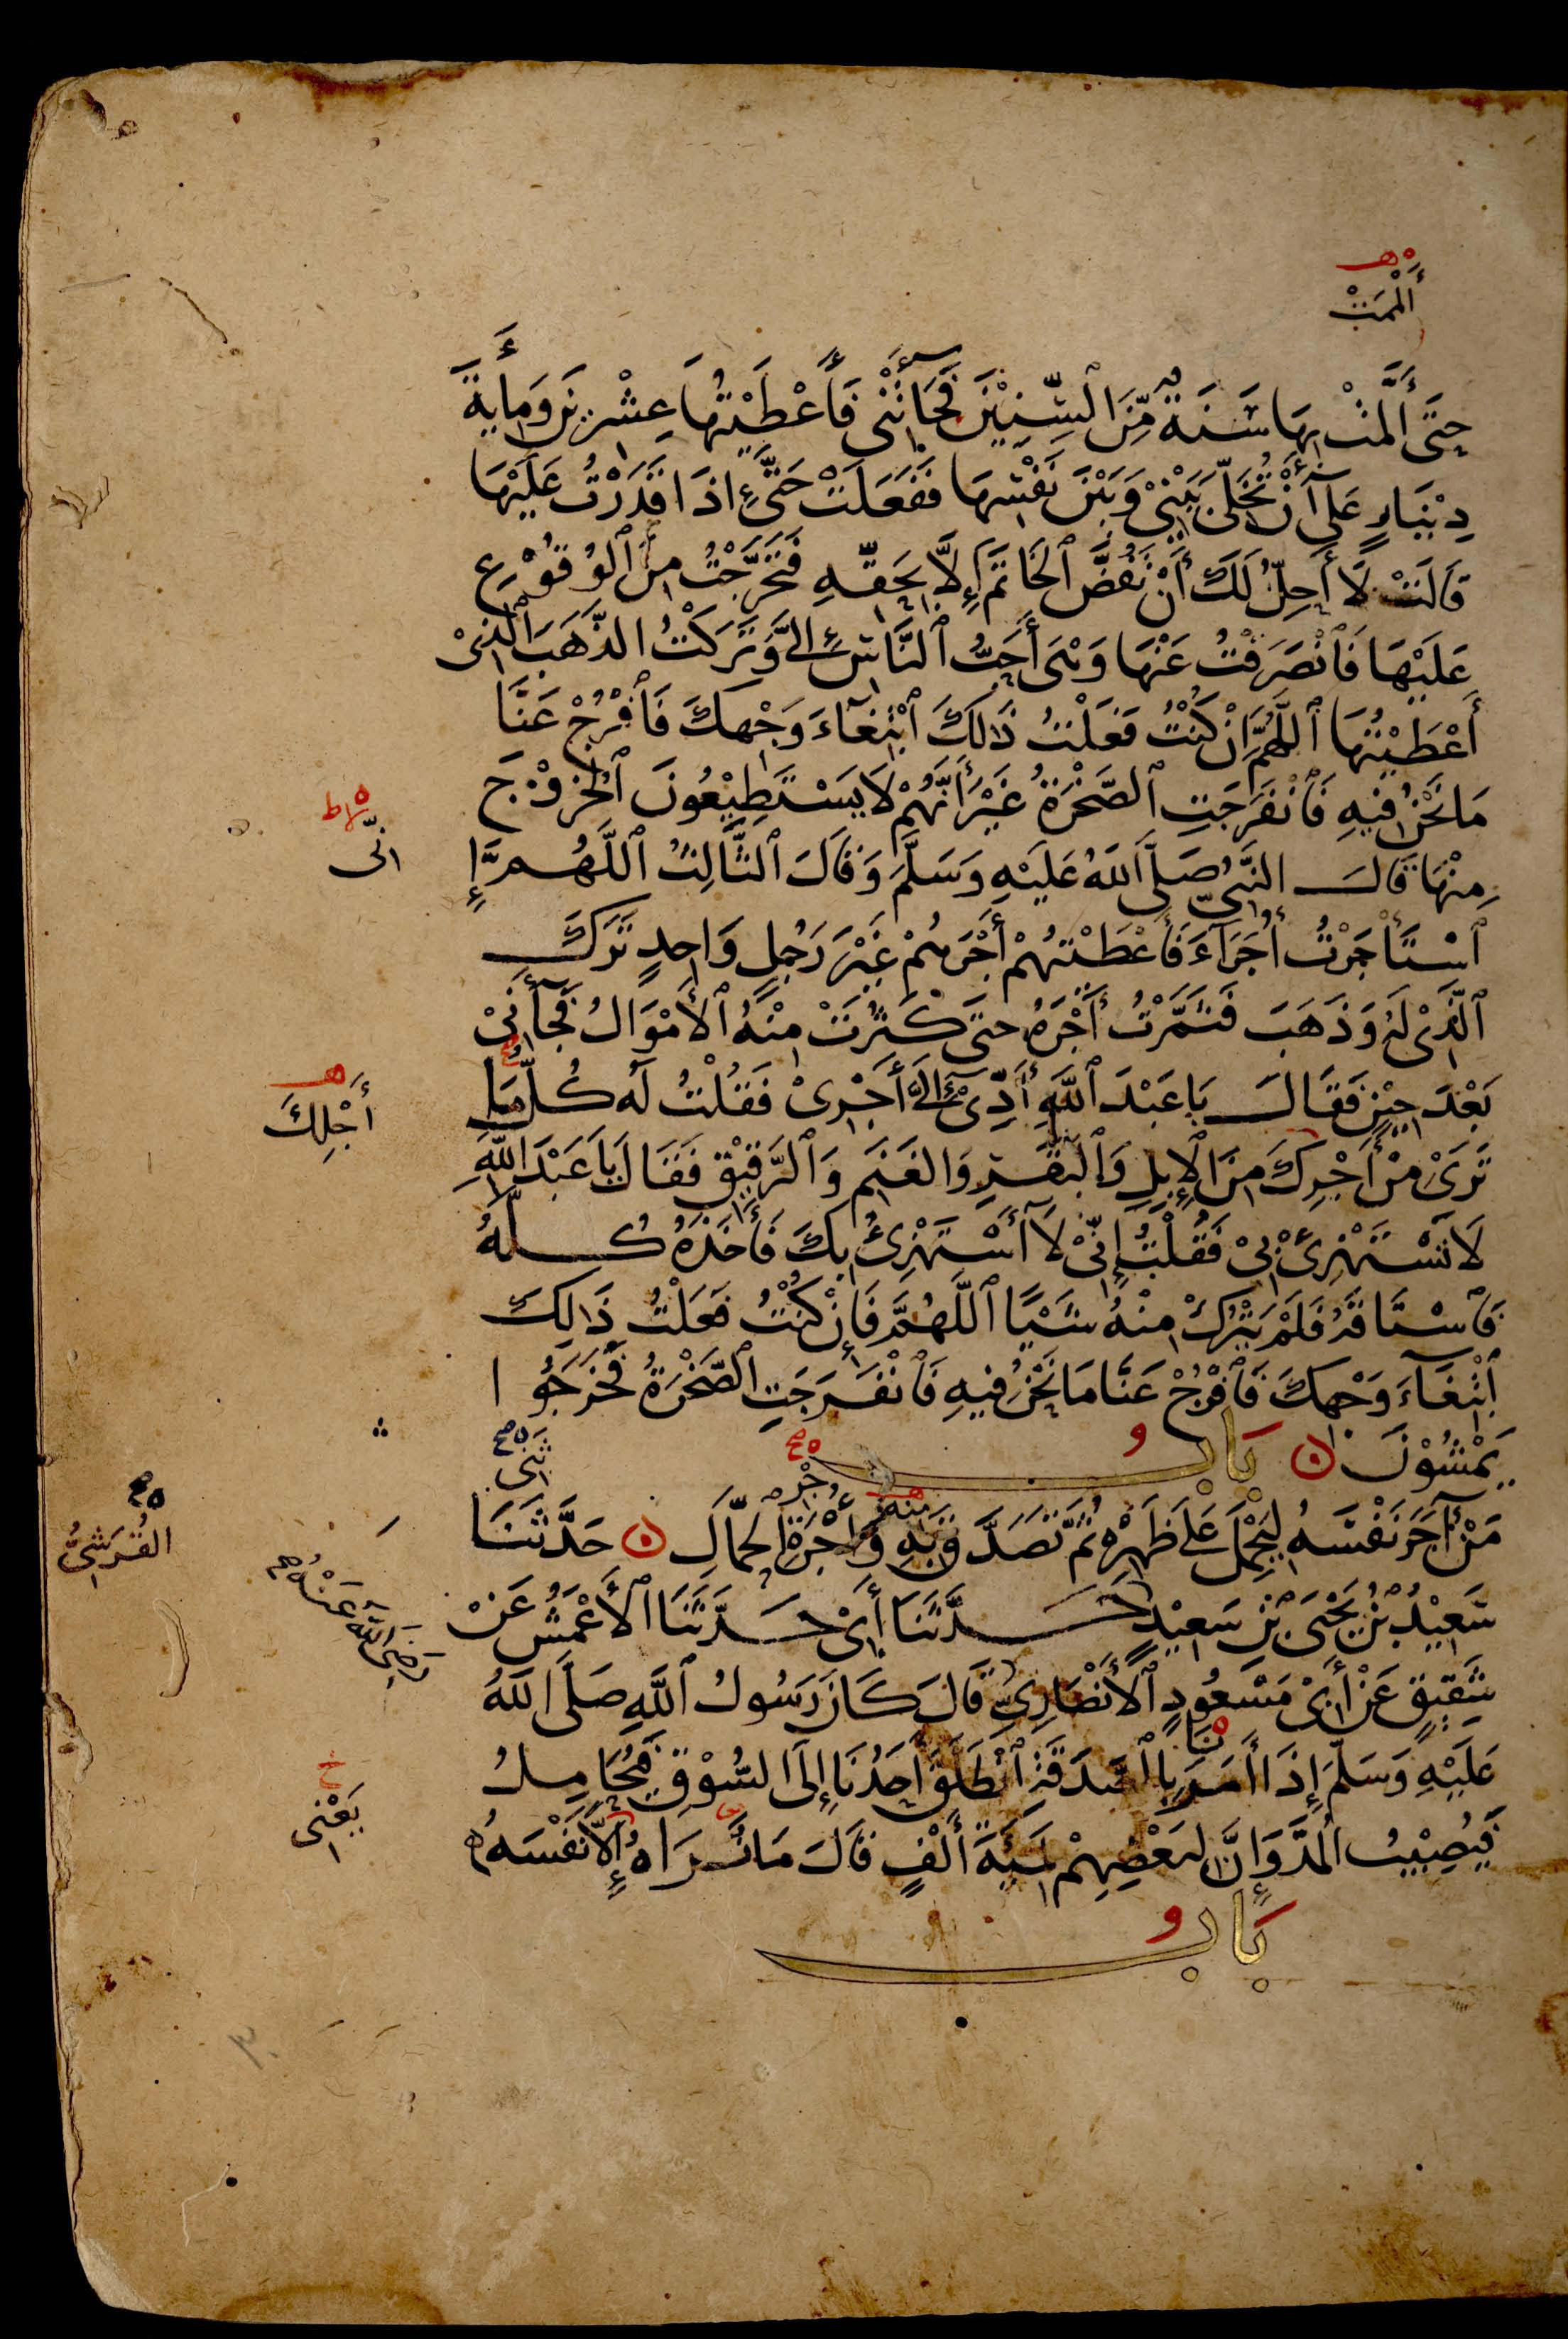 أَلَمَّتْ
حَتَّى أَلَمَّتْ بِهَا سَنَةٌ مِّنَ ٱلسِّنِيْنَ فَجَآءَتْنِى فَأَعْطَيْتُهَا عِشْرِيْنَ وَمِأيَةَ
دِيْنَارٍ عَلَى أَنْ تُخَلِّىَ بَيْنِيْ وَبَيْنَ نَفْسِهَا فَفَعَلَتْ حَتَّى إِذَا قَدَرْتُ عَلَيْهَا
قَالَتْ لَا أُحِلُّ لَكَ أَنْ تَفُضَّ ٱلْخَاتَمَ إِلَّا بِحَقِّهِ فَتَحَرَّجْتُ مِنَ ٱلْوُقُوْعِ
عَلَيْهَا فَٱنْصَرَفْتُ عَنْهَا وَهْىَ أَحَبُّ ٱلنَّاسِ إِلَىَّ وَتَرَكْتُ الذَّهَبَ ٱلَّذِىْ
أَعْطَيْتُهَا ٱللَّهُمَّ إِنْ كُنْتُ فَعَلْتُ ذَٰلِكَ ٱبْتِغَآءَ وَجْهِكَ فَٱفْرُجْ عَنَّا
مَا نَحْنُ فِيهِ فَٱنْفَرَجَتِ ٱلصَّخْرَةُ غَيْرَ أَنَّهُمْ لَا يَسْتَطِيْعُونَ ٱلْخُرُوْجَ
مِنْهَا قَالَ النَّبِىُّ صَلَّى ٱللَّهُ عَلَيْهِ وَسَلَّمَ وَقَالَ ٱلثَّالِثُ ٱللَّهُمَّ إِ
انِّى
ٱسْتَأْجَرْتُ أُجَرَآءَ فَأَعْطَيْتُهُمْ أَجْرَهُمْ غَيْرَ رَجُلٍ وَاحِدٍ تَرَكَ
ٱلَّذِىْ لَهُ وَذَهَبَ فَثَمَّرْتُ أَجْرَهُ حَتَّى كَثُرَتْ مِنْهُ ٱلْأَمْوَالُ فَجَآءَنِىْ
بَعْدَ حِيْنٍ فَقَالَ يَا عَبْدَ ٱللَّهِ أَدِّىْ إِلَىَّ أَجْرِىْ فَقُلْتُ لَهُ كُلُّ مَا
أَجْلِكَ
تَرَىْ مِنْ أَجْرِكَ مِنَ ٱلْإِبِلِ وَٱلْبَقَرِ وَالْغَنَمِ وَٱلرَّقِيْقِ فَقَالَ يَا عَبْدَ ٱللَّهِ
لَا تَسْتَهْزِئْ بِىْ فَقُلْتُ إِنِّىْ لَا أَسْتَهْزِئُ بِكَ فَأَخَذَهُ كُلَّهُ
فَٱسْتَاقَهُ فَلَمْ يَتْرُكْ مِنْهُ شَيْئًا ٱللَّهُمَّ فَإِنْ كُنْتُ فَعَلْتُ ذَالِكَ
ٱبْتِغَآءَ وَجْهِكَ فَٱفْرُجْ عَنَّا مَا نَحْنُ فِيهِ فَٱنْفَرَجَتِ ٱلصَّخْرَةُ فَخَرَجُوا
يَمْشُوْنَ ۝ بَابُ
مَنْ آجَرَ نَفْسَهُ لِيَحْمِلَ عَلَى ظَهْرِهِ ثُمَّ تَصَدَّقَ بِهِ وَأُجْرَةِ ٱلْحَمَّالِ ۝ حَدَّثَنَا
منه
ثَنِى
سَعِيْدُ بْنُ يَحْيَى بْنِ سَعِيْدٍ حَدَّثَنَا أَبِىْ حَدَّثَنَا ٱلْأَعْمَشُ عَنْ
القُرَشِىُّ
شَقِيْقٍ عَنْ أَبِىْ مَسْعُودٍ ٱلْأَنْصَارِىِّ قَالَ كَانَ رَسُولُ ٱللَّهِ صَلَّى اللَّهُ
رَضِىَ اللّٰهُ عَنْهُ صح
عَلَيْهِ وَسَلَّمَ إِذَا أَمَرَ بِٱلصَّدَقَةِ ٱنْطَلَقَ أَحَدُنَا إِلَى السُّوْقِ فَيُحَامِلُ
نَا
فَيُصِيْبُ ٱلْمُدَّ وَإِنَّ لِبَعْضِهِمْ لَمِيَةَ أَلْفٍ قَالَ مَا نُرَاهُ إِلَّا نَفْسَهُ
يَعْنِى
بَابُ